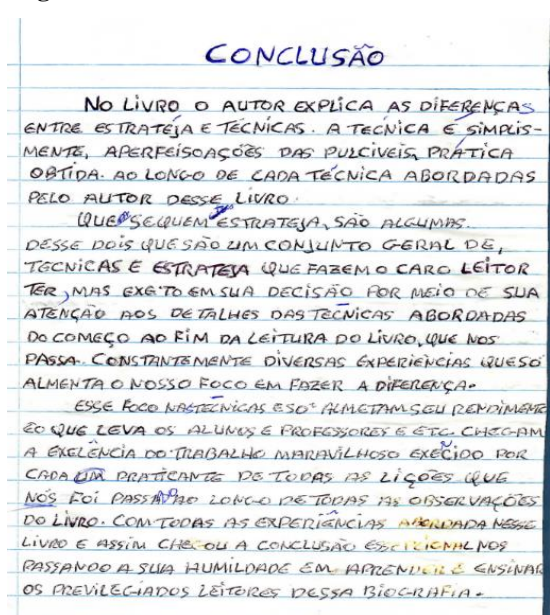 CONCLUSÃO
NO LIVRO O AUTOR EXPLICA AS DIFERENÇAS
ENTRE ESTRATÉJA E TÉCNICAS. A TECNICA É SIMPLIS-
MENTE, APERFEISOAÇÕES DAS PULCIVEIS, PRÁTICA
OBTIDA. AO LONGO DE CADA TÉCNICA ABORDADAS
PELO AUTOR DESSE LIVRO.
QUE SEQUEM ESTRATEJA, SÃO ALGUMAS.
DESSE DOIS QUE SÃO UM CONJUNTO GERAL DE,
TECNICAS E ESTRATEJA QUE FAZEM O CARO LEITOR
TER, MAS EXETO EM SUA DECISÃO POR MEIO DE SUA
ATENÇÃO AOS DETALHES DAS TÉCNICAS ABORDADAS
DO COMEÇO AO FIM DA LEITURA DO LIVRO, QUE NOS
PASSA. CONSTANTEMENTE DIVERSAS EXPERIENCIAS QUE SÓ
ALMENTA O NOSSO FOCO EM FAZER A DIFERENÇA.
ESSE FOCO NAS TÉCNICAS E SO ALMETAM SEU RENDIMENTO
EO QUE LEVA OS ALUNOS E PROFESSORES E ETC. CHEGAM
A EXELÊNCIA DO TRABALHO MARAVILHOSO EXECIDO POR
CADA UM PRATICANTE DE TODAS AS LIÇÕES QUE
NÓS FOI PASSADO AO LONGO DE TODAS AS OBSERVAÇÕES
DO LIVRO. COM TODAS AS EXPERIÊNCIAS ABORDADA NESSE
LIVRO E ASSIM CHEGOU A CONCLUSÃO NOS
PASSANDO A SUA HUMILDADE EM APRENDER E ENSINAR
OS PREVILEGIADOS LEITORES DESSA BIOGRAFIA.